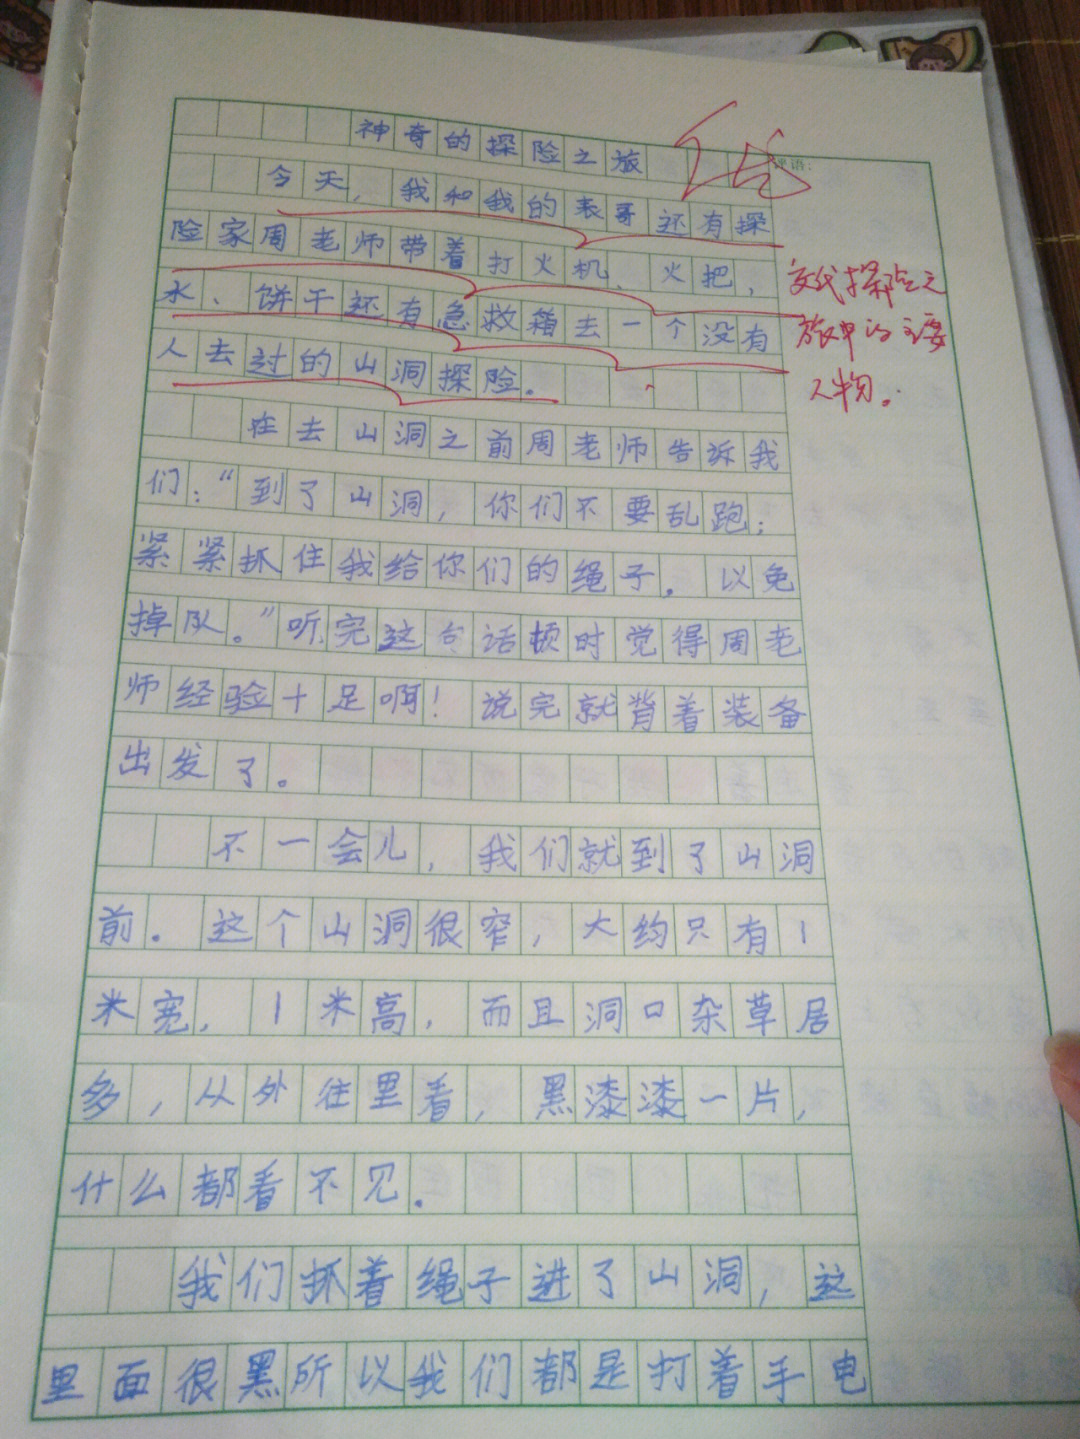 神奇的探险之旅
评语：
今天，我和我的表哥还有探
险家周老师带着打火机、火把，
水、饼干还有急救箱去一个没有
人去过的山洞探险。
交代探险之
旅中的主要
人物。
在去山洞之前周老师告诉我
们：“到了山洞，你们不要乱跑；
紧紧抓住我给你们的绳子。以免
掉队。”听完这句话顿时觉得周老
师经验十足啊！说完就背着装备
出发了。
不一会儿，我们就到了山洞
前。这个山洞很窄，大约只有1
米宽，1米高，而且洞口杂草居
多，从外往里看，黑漆漆一片，
什么都看不见。
我们抓着绳子进了山洞，这
里面很黑所以我们都是打着手电